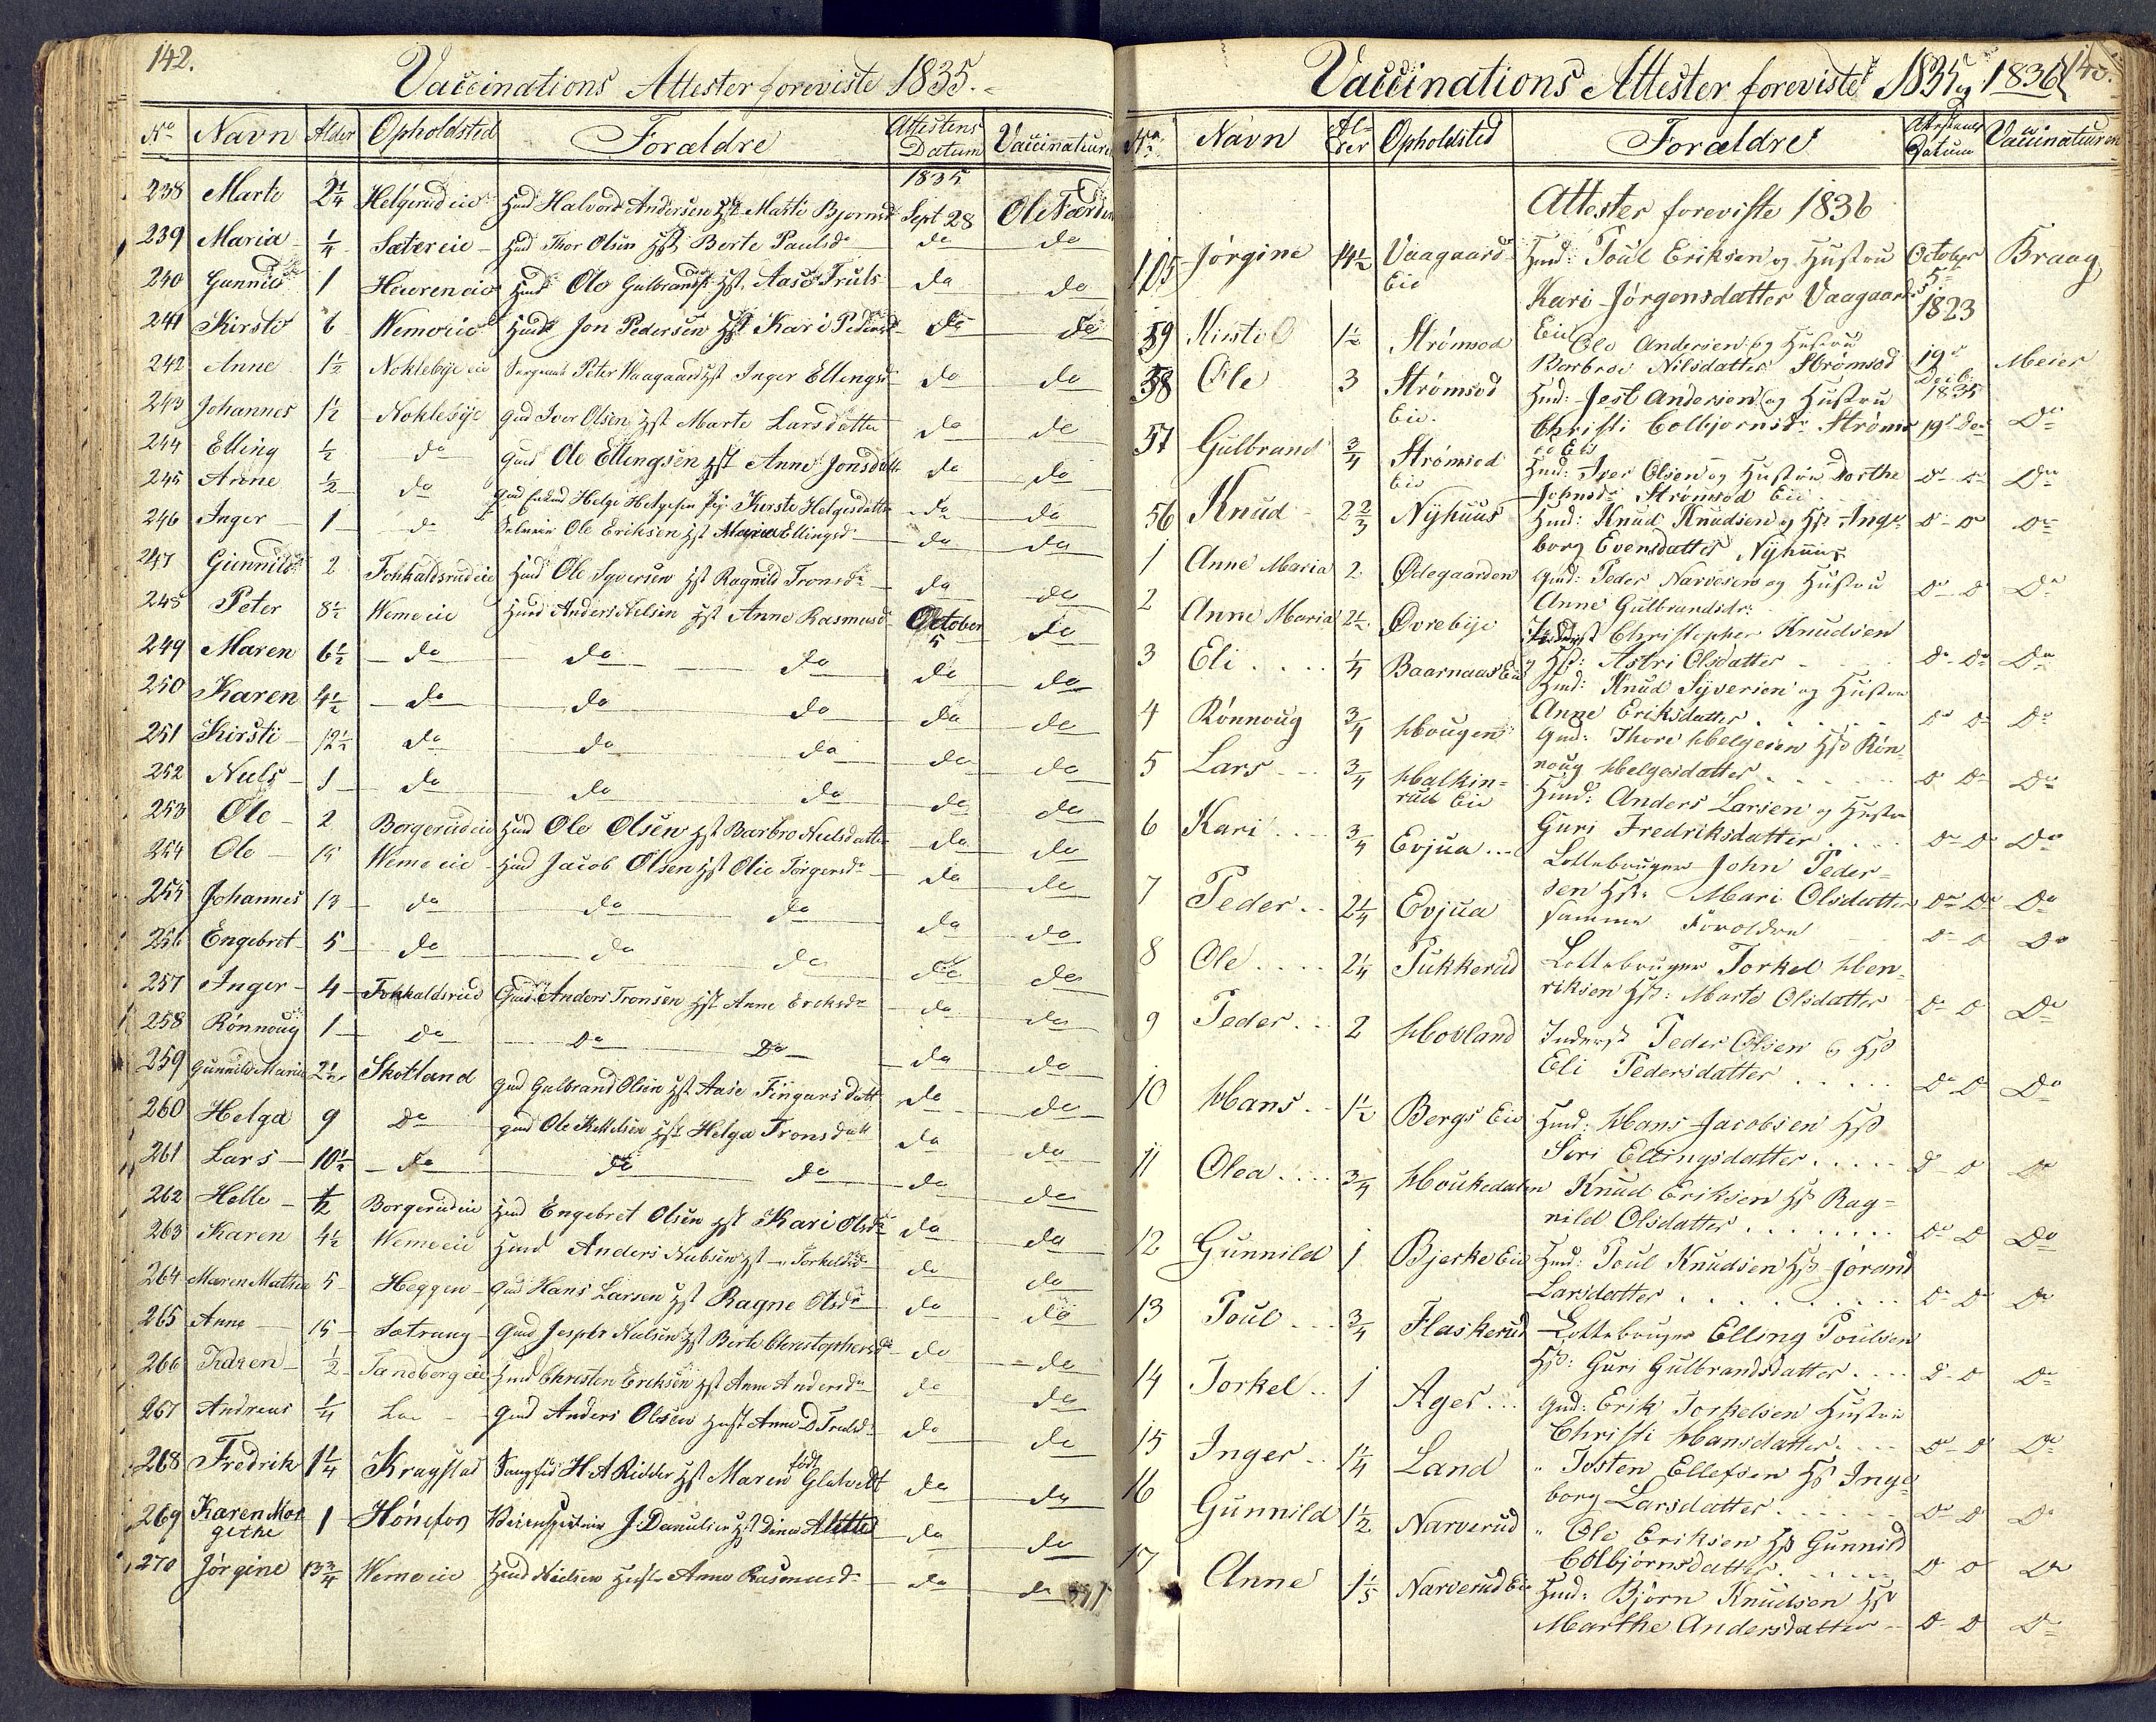 142.
Vaccinations Attester foreviste 1835.
No Navn Alder Opholdsted Forældre Attestens Datum Vaccinateuren
1835
238 Marte 2 1/4 Helgerud eie Hmd Halvord Andersen Hst Marte Bjørnsd Sept 28 Ole Nærden
239 Maria 1/4 Sæter eie Hmd Thor Olsen Hst Berte Paulsdr do do
240 Gunnild 1 eie Hmd Ole Gulbrands Hst. Aase Truls do do
241 Kirsti 6 Weme eie Hmd Jon Pedersen Hst Kari Pedersd do do
242 Anne 1 1/2 Noklebye eie Sergeant Peter Waagaard Hst Inger Ellingsd do do
243 Johannes 1 1/2 Noklebye Gmd Iver Olsen Hst Marte Larsdatter do do
244 Elling 1/2 do Gmd Ole Ellingsen Hst Anne Jonsdatt do do
245 Arne 1/2 do Gmd Helge Helgesen Pig. Kirste Helgesdatter do do
246 Inger 1 do Ole Eriksen Hst Maria Ellingsd do do
247 Gunnild 2 Fohkaldsrud eie Hmd Ole Syversen Hst Ragnild Tronsdr do do
248 Peter 8 1/2 Weme eie Hmd Anders Nelsen Hst Anne Rasmusd October 5 do
249 Maren 6 1/2 do do do do do
250 Karen 4 1/2 do do do do do
251 Kirsti 12 1/2 do do do do do
252 Niels 1 do do do do do
253 Ole 2 Borgerud eie Hmd Ole Olsen Hst Barbro Nielsdatter do do
254 Ole 15 Weme eie Hmd Jacob Olsen Hst Olie Torgersdr do do
255 Johannes 13 do do do do do
256 Engebret 5 do do do do do
257 Inger 4 Fohkaldsrud Gmd Anders Tronsen Hst Anne Ericksdr do do
258 Rønnoug 1 Do Do Do do do
259 Gunnild Maria 2 1/2 Skotland Gmd Gulbrand Olsen Hst Aase Fingarsdatt do do
260 Helga 9 Do Gmd Ole Kittelsen Hst Helga Tronsdatt do do
261 Lars 10 1/2 do do do do do
262 Helle 1/2 Borgerud eie Hmd Engebret Olsen Hst Kari Olsdr do do
263 Karen 4 1/2 Weme eie Hmd Anders Nielsen Hst Torkeldsdr do do
264 Maren Mathea 5 Heggen Gmd Hans Larsen Hst Ragne Olsdr do do
265 Anne 15 Sætrang Gmd Jesper Nielsen Hst Berte Christophersdr do do
266 Karen 1/2 Tandberg eie Hmd Christen Ericksen Hst Anne Andersdr do do
267 Andreas 1/4 Gmd Anders Olsen Hust Anne D Trulsd do do
268 Fredrik 1 1/4 Kragstad H A Ridder Hst Maren født Glatvedt do do
269 Karen Margethe 1 Hønefos J. Danielsen Hst Dina Alette do do
270 Jørgine 13 3/4 Weme eie Hmd Nielsen Hust Anne Rasmusdr do do
Vaccinations Attester foreviste 1835 og 1836
No Navn Alder Opholdsted Forældre Attestens Datum Vaccinateuren
Attester foreviste 1836
105 Jørgine 14 1/2 Vaagaards Eie Hmd: Poul Eriksen og Hustru October 5te Braag
Kari Jørgensdatter Vaagaards Eie 1823
59 Kirsti 1 1/2 Strømsod Ole Andersen og Hustru
Barbroe Nilsdatter Strømsod 19de Decbr 1835 Meier
58 Ole 3 Strømsod Eie. Hmd: Jest Andersen og Hustru
Christi Colbjørnsdr Strømsod Eie 19de Do
57 Gulbrand 3/4 Strømsod Eie Hmd: Iver Olsen og Hustru Dorthe Do Do Do
Johnsdr Strømsod Eie
56 Knud 2 2/3 Nyhuus Hmd: Knud Knudsen og Hst Inge- Do Do Do
borg Evensdatter Nyhuus
1 Anne Maria 2 Ødegaarden Gmd: Peder Narvesen og Hustru Do Do Do
Anne Gulbrandsdr:
2 Anne Maria 2 1/2 Øvrebye Inderst Christopher Knudsen
Hst: Astri Olsdatter Do Do Do
3 Eli 1/4 Baarnaas Eie Hmd: Knud Syversen og Hustru
Anne Eriksdatter Do Do Do
4 Rønnoug 3/4 Hougen Gmd: Thore Helgesen Hst Røn-
noug Helgesdatter Do Do Do
5 Lars 3/4 Halkin-rud Eie Hmd: Anders Larsen og Hustru
Guri Fredriksdatter Do Do Do
6 Kari 3/4 Evjua Lottebruger John Peder-
sen Hst: Mari Olsdatter Do Do Do
7 Peder 2 1/4 Evjua samme Foroldre Do Do Do
8 Ole 2 1/4 Pukkerud Lottebruger Torkel Hen-
riksen Hst: Marte Olsdatter Do Do Do
9 Peder 2 Hovland Inderst Peder Olsen og Hst
Eli Pedersdatter Do Do Do
10 Hans 1 1/2 Bergs Eie Hmd: Hans Jacobsen Hst
Siri Ellingsdatter Do Do Do
11 Olea 3/4 Houkedalen Knud Eriksen Hst Rag-
nild Olsdatter Do Do Do
12 Gunnild 1 Bjerke Eie Hmd: Poul Knudsen Hst Jørand
Larsdatter Do Do Do
13 Poul 3/4 Flaskerud Lottebruger Elling Poulsen
Hst: Guri Gulbrandsdatter Do Do Do
14 Torkel 1 Ager Gmd: Erik Torkelsen Hustru
Christi Hansdatter Do Do Do
15 Inger 1 1/4 Land " Josten Ellefsen Hst Inge-
borg Larsdatter Do Do Do
16 Gunnild 1 1/2 Narverud " Ole Eriksen Hst Gunnild
Colbjørnsdatter Do Do Do
17 Anne 1 1/5 Narverud Eie Hmd: Bjørn Knudsen Hst
Marthe Andersdatter Do Do Do